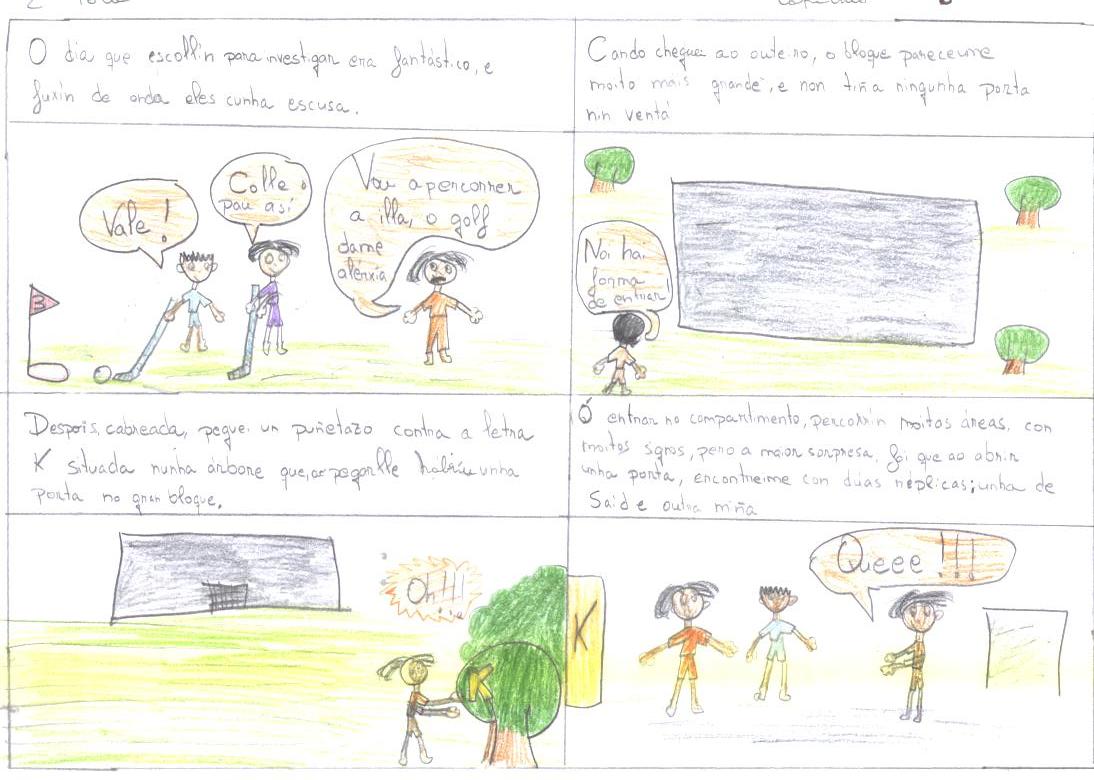 O dia que escollín para investigar era fantástico, e
fuxín de onda eles cunha escusa.
Vale!
Colle o
pau así
Vou a percorrer
a illa, o golf
dame
alérxia
3
Cando cheguei ao outeiro, o bloque pareceume
moito mais grande, e non tiña ningunha porta
nin ventá
Non hai
forma
de entrar!
Despois, cabreada, peguei un puñetazo contra a letra
K situada nunha árbore que, ao pegarlle abriu unha
porta no gran bloque.
Oh!!!...
K
Ó entrar no compartimento, percorrín moitos áreas, con
moitos signos, pero a maior sorpresa, foi que ao abrir
unha porta, encontreime con dúas réplicas; unha de
Said e outra miña
K
Queee!!!